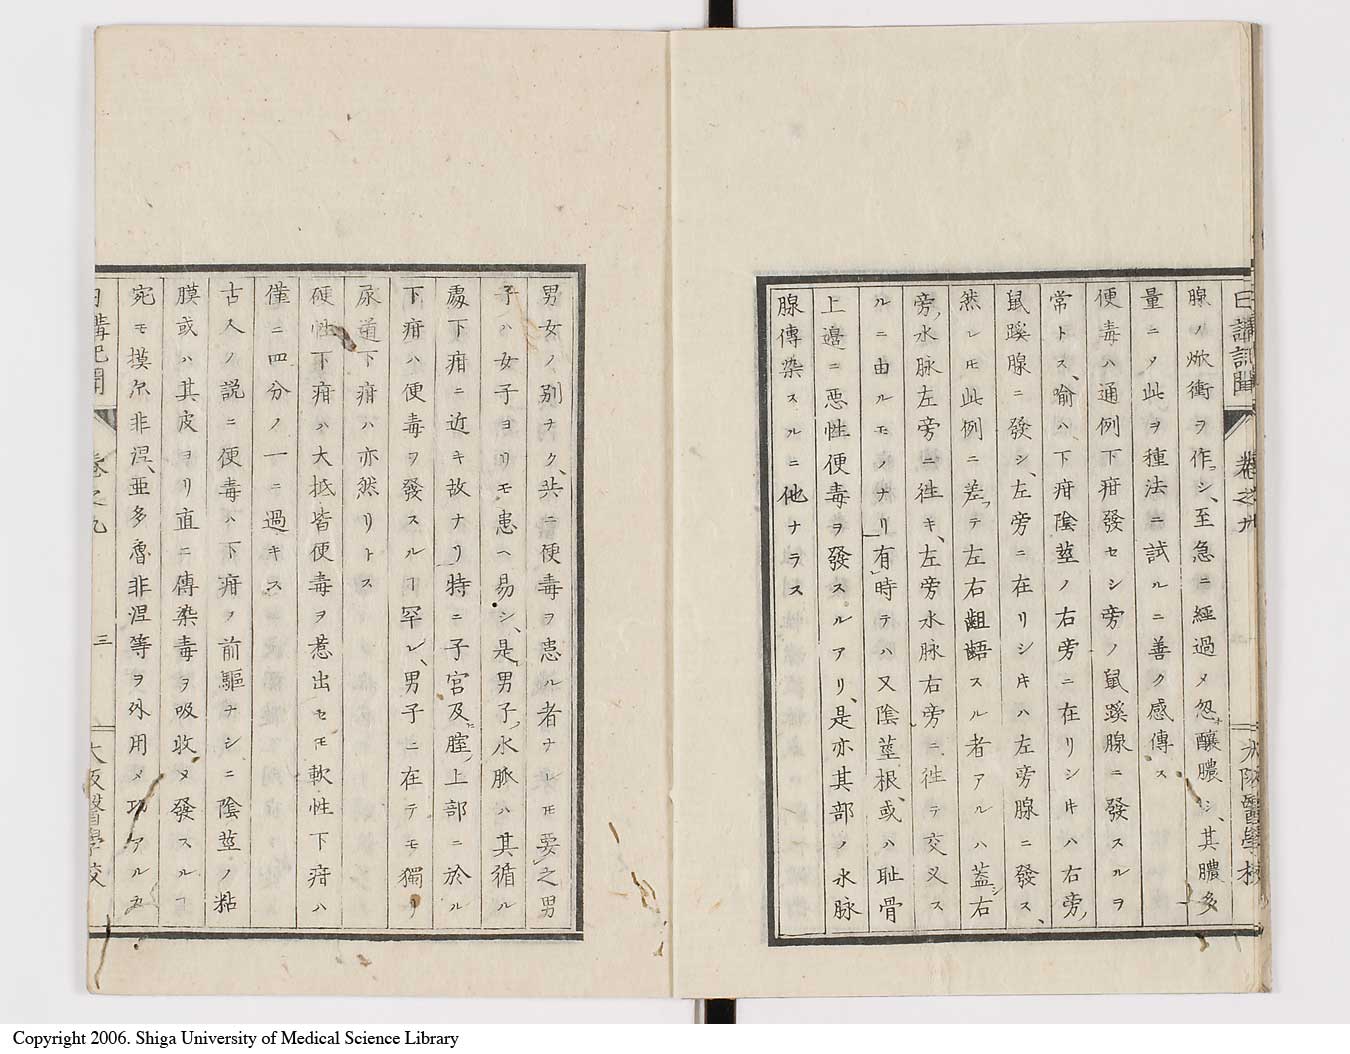 日講記聞 卷之九 大阪醫學校
腺ノ焮衝ヲ作シ、至急ニ經過メ忽釀膿シ、其膿多
量ニメ此ヲ種法ニ試ルニ善ク感傳ス
便毒ハ通例下疳發セシ旁ノ鼠蹊腺ニ發スルヲ
常トス、喻ハ下疳陰莖ノ右旁ニ在リシ𪜈ハ右旁ノ
鼠蹊腺ニ發シ、左旁ニ在リシ𪜈ハ左旁腺ニ發ス、
然レ𪜈此例ニ差テ左右齟齬スル者アルハ蓋シ右
旁ノ水脉左旁ニ徃キ、左旁水脉右旁ニ徃テ交叉ス
ルニ由ルモノナリ有時テハ又陰莖根或ハ耻骨
上邉ニ悪性便毒ヲ發スルアリ、是亦其部ノ水脉
腺傳染スルニ他ナラス
男女ノ別ナク、共ニ便毒ヲ患ル者ナレ𪜈要之男
子ハ女子ヨリモ患ヘ易シ、是男子ノ水脈ハ其循ル
處下疳ニ近キ故ナリ特ニ子宮及ヒ腟ノ上部ニ於ル
下疳ハ便毒ヲ發スルヿ罕レ、男子ニ在テモ獨リ
尿道下疳ハ亦然リトス
硬性下疳ハ大抵皆便毒ヲ惹出セ𪜈軟性下疳ハ
僅ニ四分ノ一ニ過キス
古人ノ説ニ便毒ハ下疳ノ前驅ナシニ陰莖ノ粘
膜或ハ其皮ヨリ直ニ傳染毒ヲ吸收メ發スルヿ
宛モ摸尓非涅、亜多魯非涅等ヲ外用メ功アルカ
日講記聞 卷之九 三 大阪醫學校
Copyright 2006. Shiga University of Medical Science Library